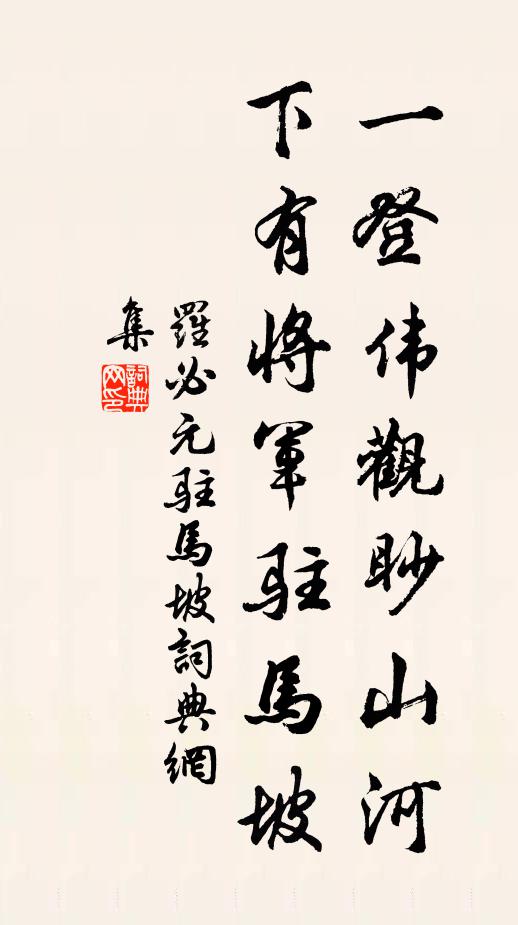 一登伟觀眇山河
下有將軍駐馬坡
羅必元駐馬坡詞典網
集
詞典网印